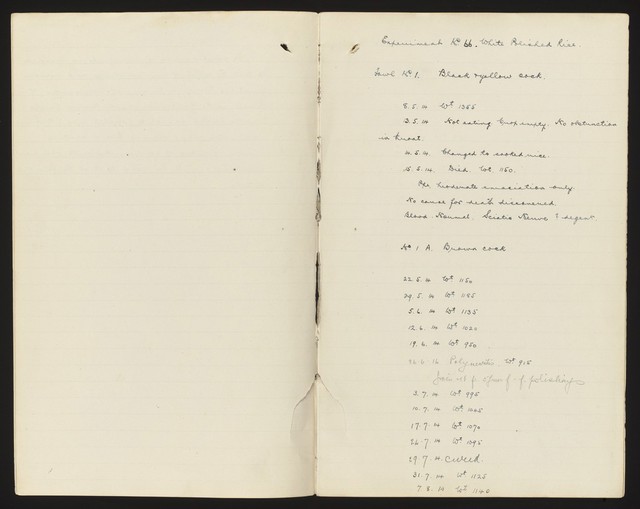 Experiment No 66. White Polished Rice.
Fowl No 1. Black & yellow cock.
8.5.14 Wt 1355
3.5.14 Not eating. Crop empty. No obstruction
in throat.
14.5.14. Changed to rice.
15.5.14. Died. Wt. 1150.
Moderate emaciation only.
No cause for death discovered.
Blood. Normal. Sciatic Nerve ? degent
No 1 A. Brown cock
22.5.14 Wt 1150
29.5.14 Wt 1185
5.6.14 Wt 1135
12.6.14 Wt 1020
19.6.14 Wt 950
26.6.14 Polyneuritis Wt 915
of polishings
3.7.14 Wt 995
10.7.14 Wt 1045
17.7.14 Wt 1070
24.7.14 Wt 1095
29.7.14. Cured.
31.7.14 Wt 1125
7.8.14 Wt 1140